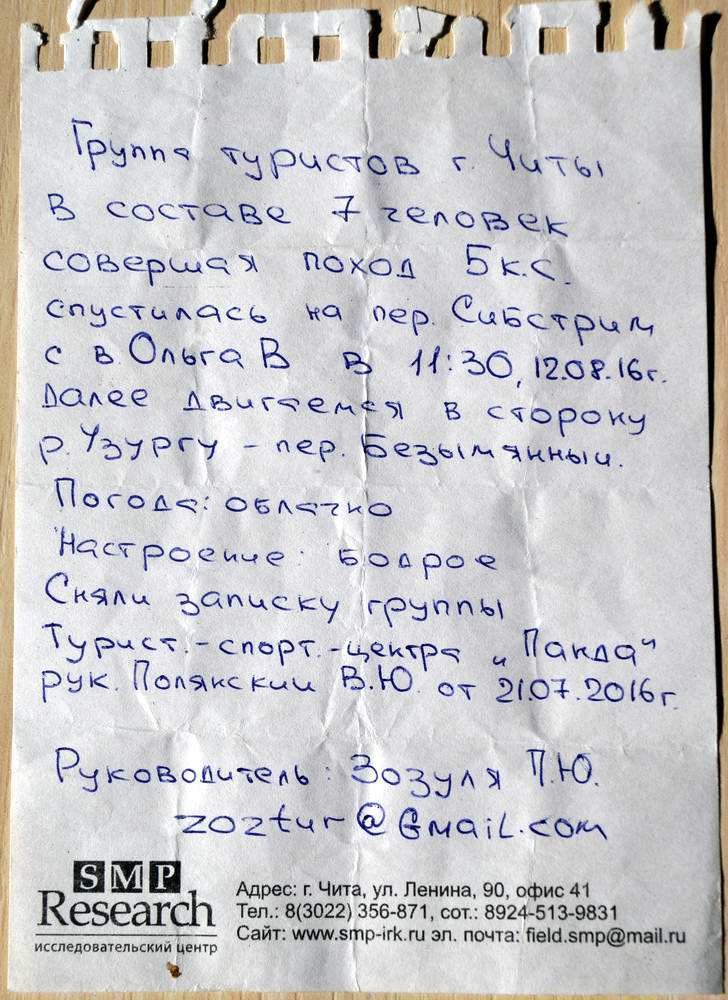 Группа туристов г. Читы
в составе 7 человек
совершая поход 5 к.с.
спустилась на пер. Сибстрим
с в. Ольга В в 11:30, 12.08.16г.
Далее двигаемся в сторону
р. Узургу - пер. Безымянный.
Погода: облачно
Настроение: бодрое
Сняли записку группы
Турист.-спорт.-центра „Панда"
рук. Полянский В.Ю. от 21.07.2016г.
Руководитель: Зозуля П.Ю.
zoztur@Gmail.com
SMP
Research
исследовательский центр
Адрес: г. Чита, ул. Ленина, 90, офис 41
Тел.: 8(3022) 356-871, сот.: 8924-513-9831
Сайт: www.smp-irk.ru эл. почта: field.smp@mail.ru